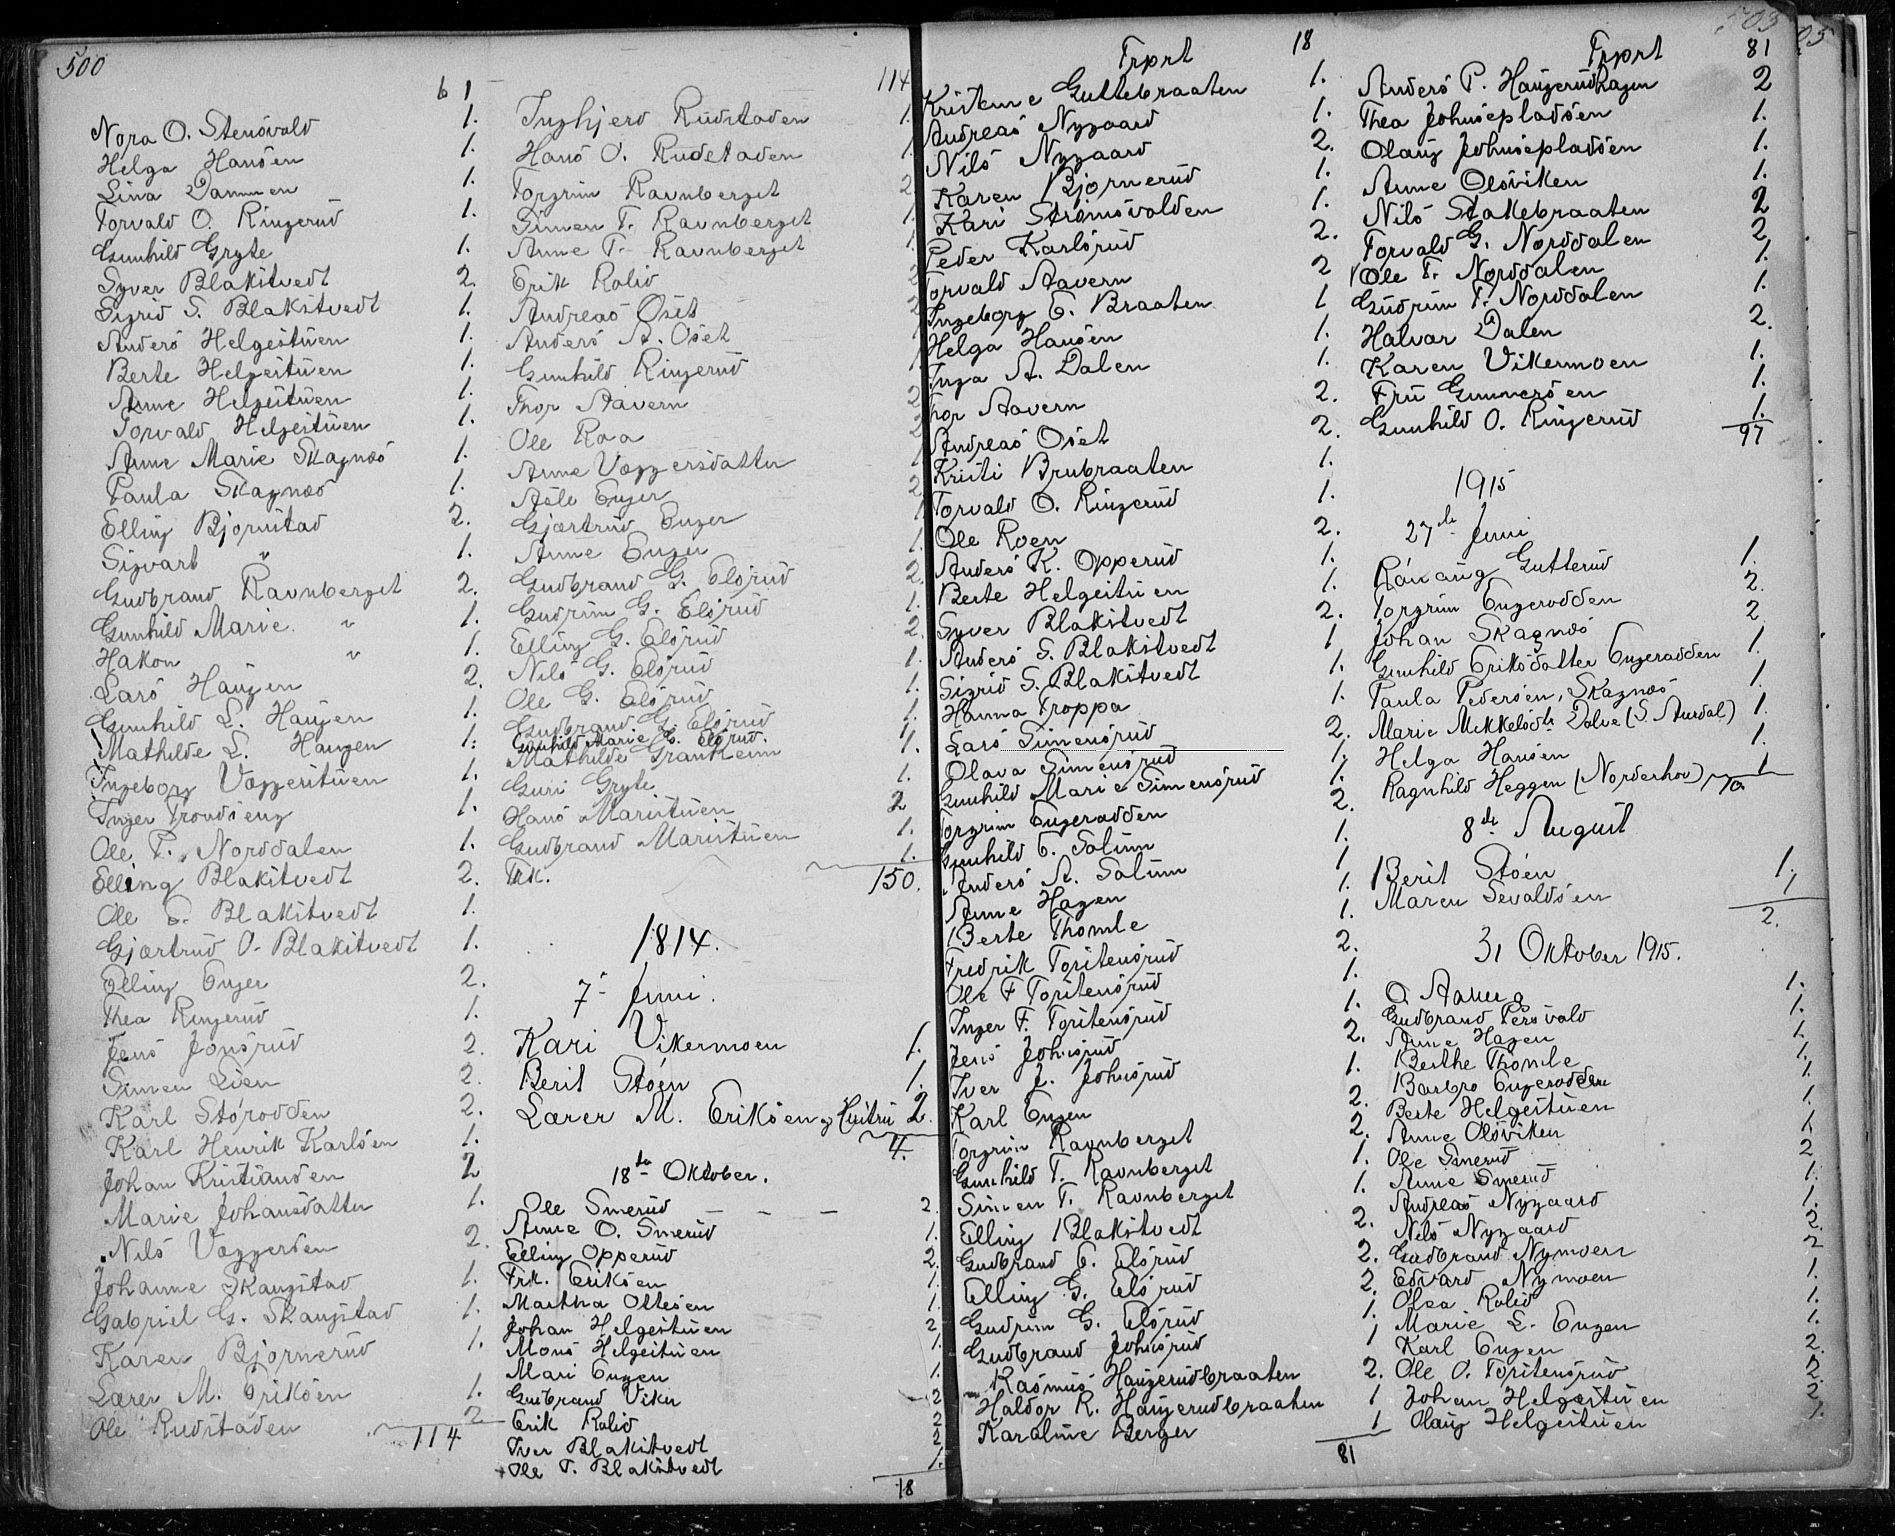 500
61
Nora O. Stensvold 1.
Helga Hansen 1.
Lina Dammen 1.
Torvald O. Ringerud 1.
Gunhild Gryte 1.
Syver Blakstvedt 2.
Sigrid S. Blakstvedt 1.
Anders Helgestuen 1.
Berte Helgestuen 1.
Anne Helgestuen 1.
Torvald Helgestuen 1.
Anne Marie Skagnæs 1.
Paula Skagnæs 1.
Elling Bjørnstad 2.
Sigvart " 1.
Gudbrand Ravnberget 2.
Gunhild Marie " 1.
Hakon " 1.
Lars Haugen 2.
Gunhild L. Haugen 1.
Mathilde L. Haugen 1.
Ingeborg Vaggestuen 1.
Inger Trondseng 1.
Ole T. Norddalen 1.
Elling Blakstvedt 2.
Ole E. Blakstvedt 1.
Gjærtrud O. Blakstvedt 1.
Elling Enger 2.
Thea Ringerud 1.
Jens Jonsrud 2.
Simen Lien 2.
Karl Størodden 2.
Karl Henrik Karlsen 1.
Johan Kristiansen 2
Marie Johansdatter 1.
Nils Vaggersen 2.
Johanne Skaugstad 1.
Gabriel G. Skaugstad 1.
Karen Bjørnerud 1.
Lærer M. Eriksen 1.
Ole Rudstaden 2
114
114
Ingbjerd Rudstaden 1.
Hans O. Rudstaden 1.
Torgrim Ravnberget 2
Simen T. Ravnberget 1
Anne T. Ravnberget 1.
Erik Rolid 2
Andreas Oset 2
Anders A. Oset 1
Gunhild Ringerud 1
Thor Aavern 2
Ole Roa 2
Anne Vaggersdatter 1
Asle Enger 2
Gjærtrud Enger 1
Anne Enger 1.
Gudbrand G. Elsrud 2.
Gudrun G. Elsrud 1.
Elling G. Elsrud 2.
Nils G. Elsrud 1.
Ole G. Elsrud 1.
Gudbrand G. Elsrud 1.
Gunhild Marie G. Elsrud. 1.
Mathilde Granheim
Guri Gryte 1.
Hans Maristuen 2
Gudbrand Maristuen 1.
Frk. 1.
150.
1814.
7- Juni.
Kari Vikermoen 1.
Berit Støen 1.
Lærer M. Eriksen og Hustru 2.
4.
18de Oktober.
Ole Smerud - - - 2.
Anne O. Smerud 1.
Elling Opperud 2.
Frk. Eriksen 1.
Martha Ottesen 1.
Johan Helgestuen 2
Mons Helgestuen 1.
Mari Engen 1.
Gudbrand Viker 2
Erik Rolid 2
Iver Blakstvedt 2.
Ole T. Blakstvedt 1.
18
Trprt 18
Kristenne Guttebraaten 1.
Andreas Nygaard 1.
Nils Nygaard 2.
Karen Bjørnerud 1.
Kari Strømsvolden 1.
Peder Karlsrud 2.
Torvald Aavern 2
Ingeborg E. Braaten 1
Helga Hansen 1.
Inga A. Dalen 1.
Thor Aavern 2.
Andreas Oset 2.
Kristi Brubraaten 1.
Torvald O. Ringerud 1.
Ole Roen 2.
Anders K. Opperud 1.
Berte Helgestuen 1.
Syver Blakstvedt 2.
Anders S. Blakstvedt 1
Sigrid S. Blakstvedt 1.
Hanna Froppa 1.
Lars Simensrud 2.
Olava Simensrud 1.
Gunhild Marie Simensrud 1.
Torgrim Engerodden 2.
Gunhild E. Solum 1.
Anders A. Solum 1
Anne Hagen 1.
Berte Thomle 1.
Fredrik Torstensrud 2.
Ole F Torstensrud 1.
Inger F. Torstensrud 1.
Jens Johnsrud 2.
Iver J. Johnsrud 1.
Karl Engen 2.
Torgrim Ravnberget 2.
Gunhild T. Ravnberget 1.
Simen T. Ravnberget 1.
Elling Blakstvedt 2.
Gudbrand E. Elsrud 2.
Elling G. Elsrud 2.
Gudrun G. Elsrud 1.
Gudbrand Johnsrud 1
Rasmus Haugerudbraaten 2.
Haldor R. Haugerudbraaten 1
Karoline Berger 1
81
503
Trprt 81
Anders P. Haugerudhagen 2
Thea Johnsepladsen 1.
Olaug Johnsepladsen 1.
Anne Olsviken 1.
Nils Stakebraaten 2
Torvald G. Norddalen 2
Ole T. Norddalen 1.
Gudrun T. Norddalen 1.
Halvor Dalen 2.
Karen Vikermoen 1.
Fru Gunnersen 1.
Gunhild O. Ringerud 1.
97
1915
27de Juni
Rønnaug Gutterud 1.
Torgrim Engerodden 2.
Johan Skagnæs 2
Gunhild Eriksdatter Engerodden 1.
Paula Pedersen, Skagnæs 1.
Marie Mikkelsdtr Dalve (S. Aurdal) 1.
Helga Hansen 1.
Ragnhild Heggen (Norderhov) 1
10
8de August
Berit Støen 1.
Maren Sevaldsen 1
2.
31 Oktober 1915.
Gudbrand Persvold 1.
Anne Hagen 1.
Berthe Thomle 1.
Barbro Engerodden 1.
Berte Helgestuen 1.
Anne Olsviken 1
Ole Smerud 2
Anne Smerud 1.
Andreas Nygaard 1.
Nils Nygaard 2.
Gudbrand Nymoen 2
Edvard Nymoen 1.
Olea Rolid 1.
Marie L. Engen 1.
Karl Engen 2.
Ole O. Torstensrud 2.
Johan Helgestuen 2
Olaug Helgestuen 1.